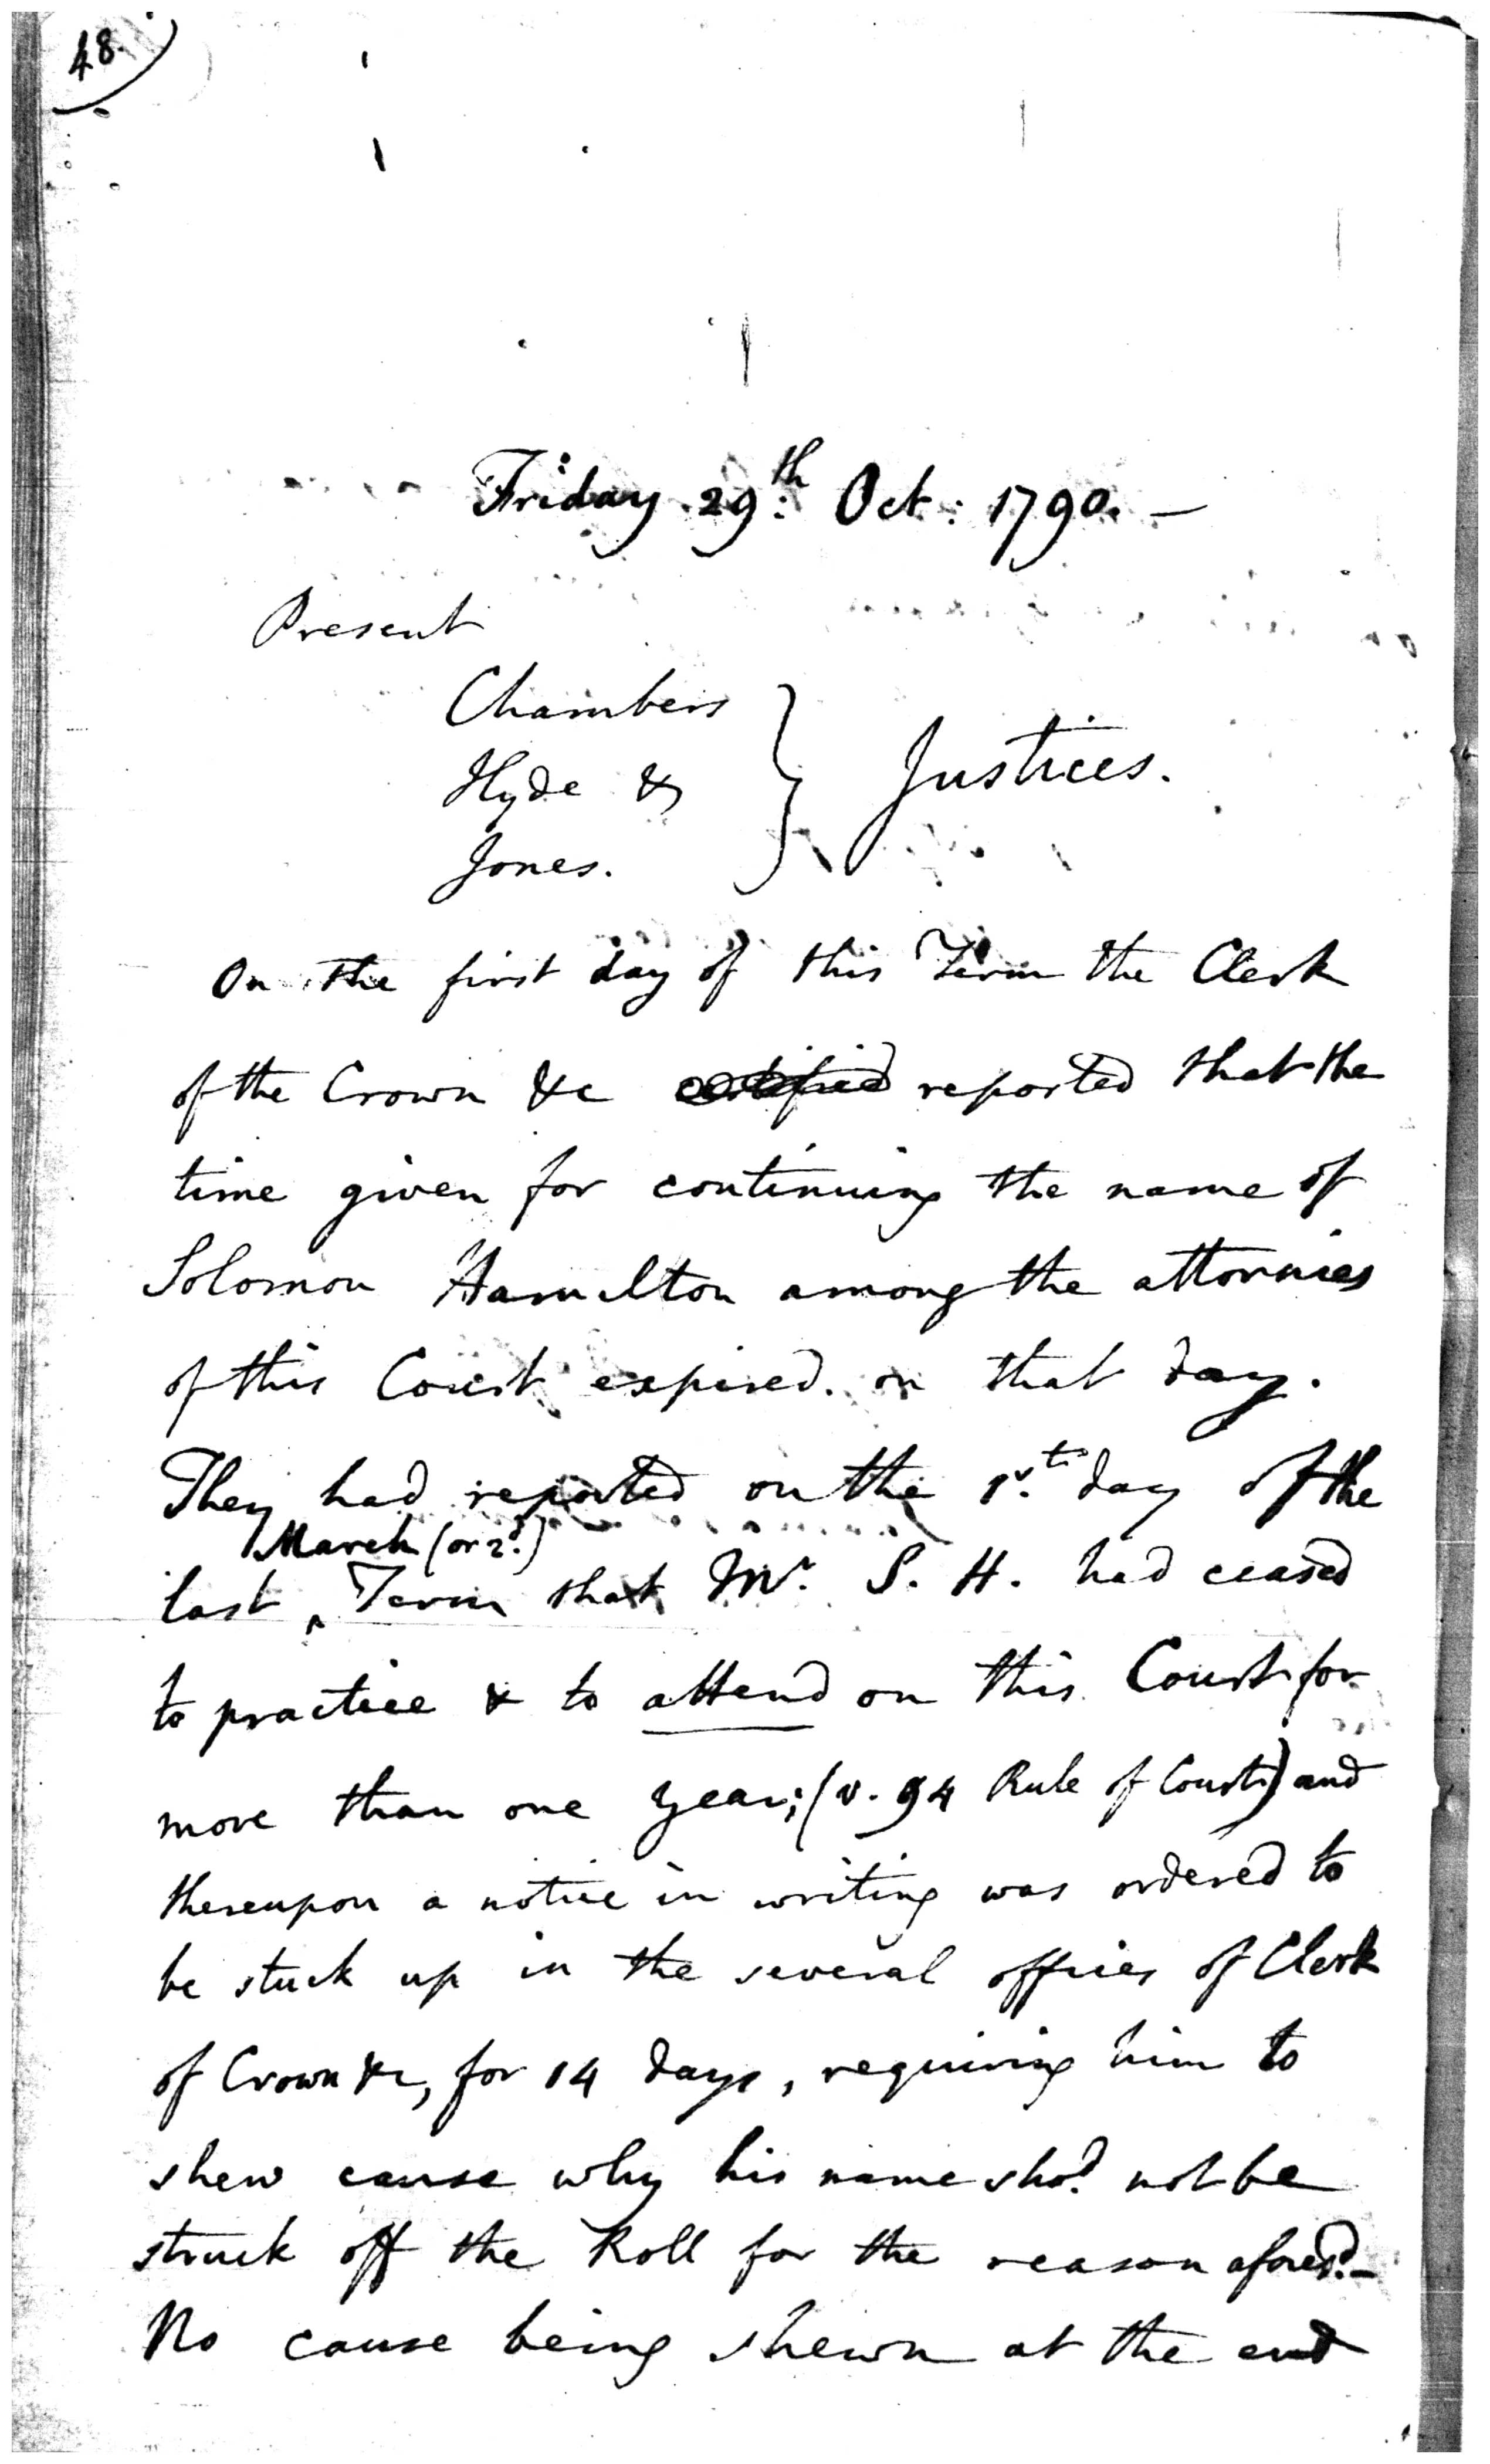 48.
Friday 29th. Oct: 1790. —
Present
Chambers
Hyde &
Jones.
} Justices.
On the first day of this Term the Clerk
of the Crown &c certified reported that the
time given for continuing the name of
Solomon Hamilton among the attornies
of this Court expired on that day.
They had reported on the 1st. day of the
March (or 2d.)
last ^ Term that Mr. S. H. had ceased
to practice & to attend on this Court for
more than one year; (v. 94 Rule of Court) and
thereupon a notice in writing was ordered to
be stuck up in the several offices of Clerk
of Crown &c, for 14 days, requiring him to
shew cause why his name shod. not be
struck off the Roll for the reason aforesd. —
No cause being shewn at the end